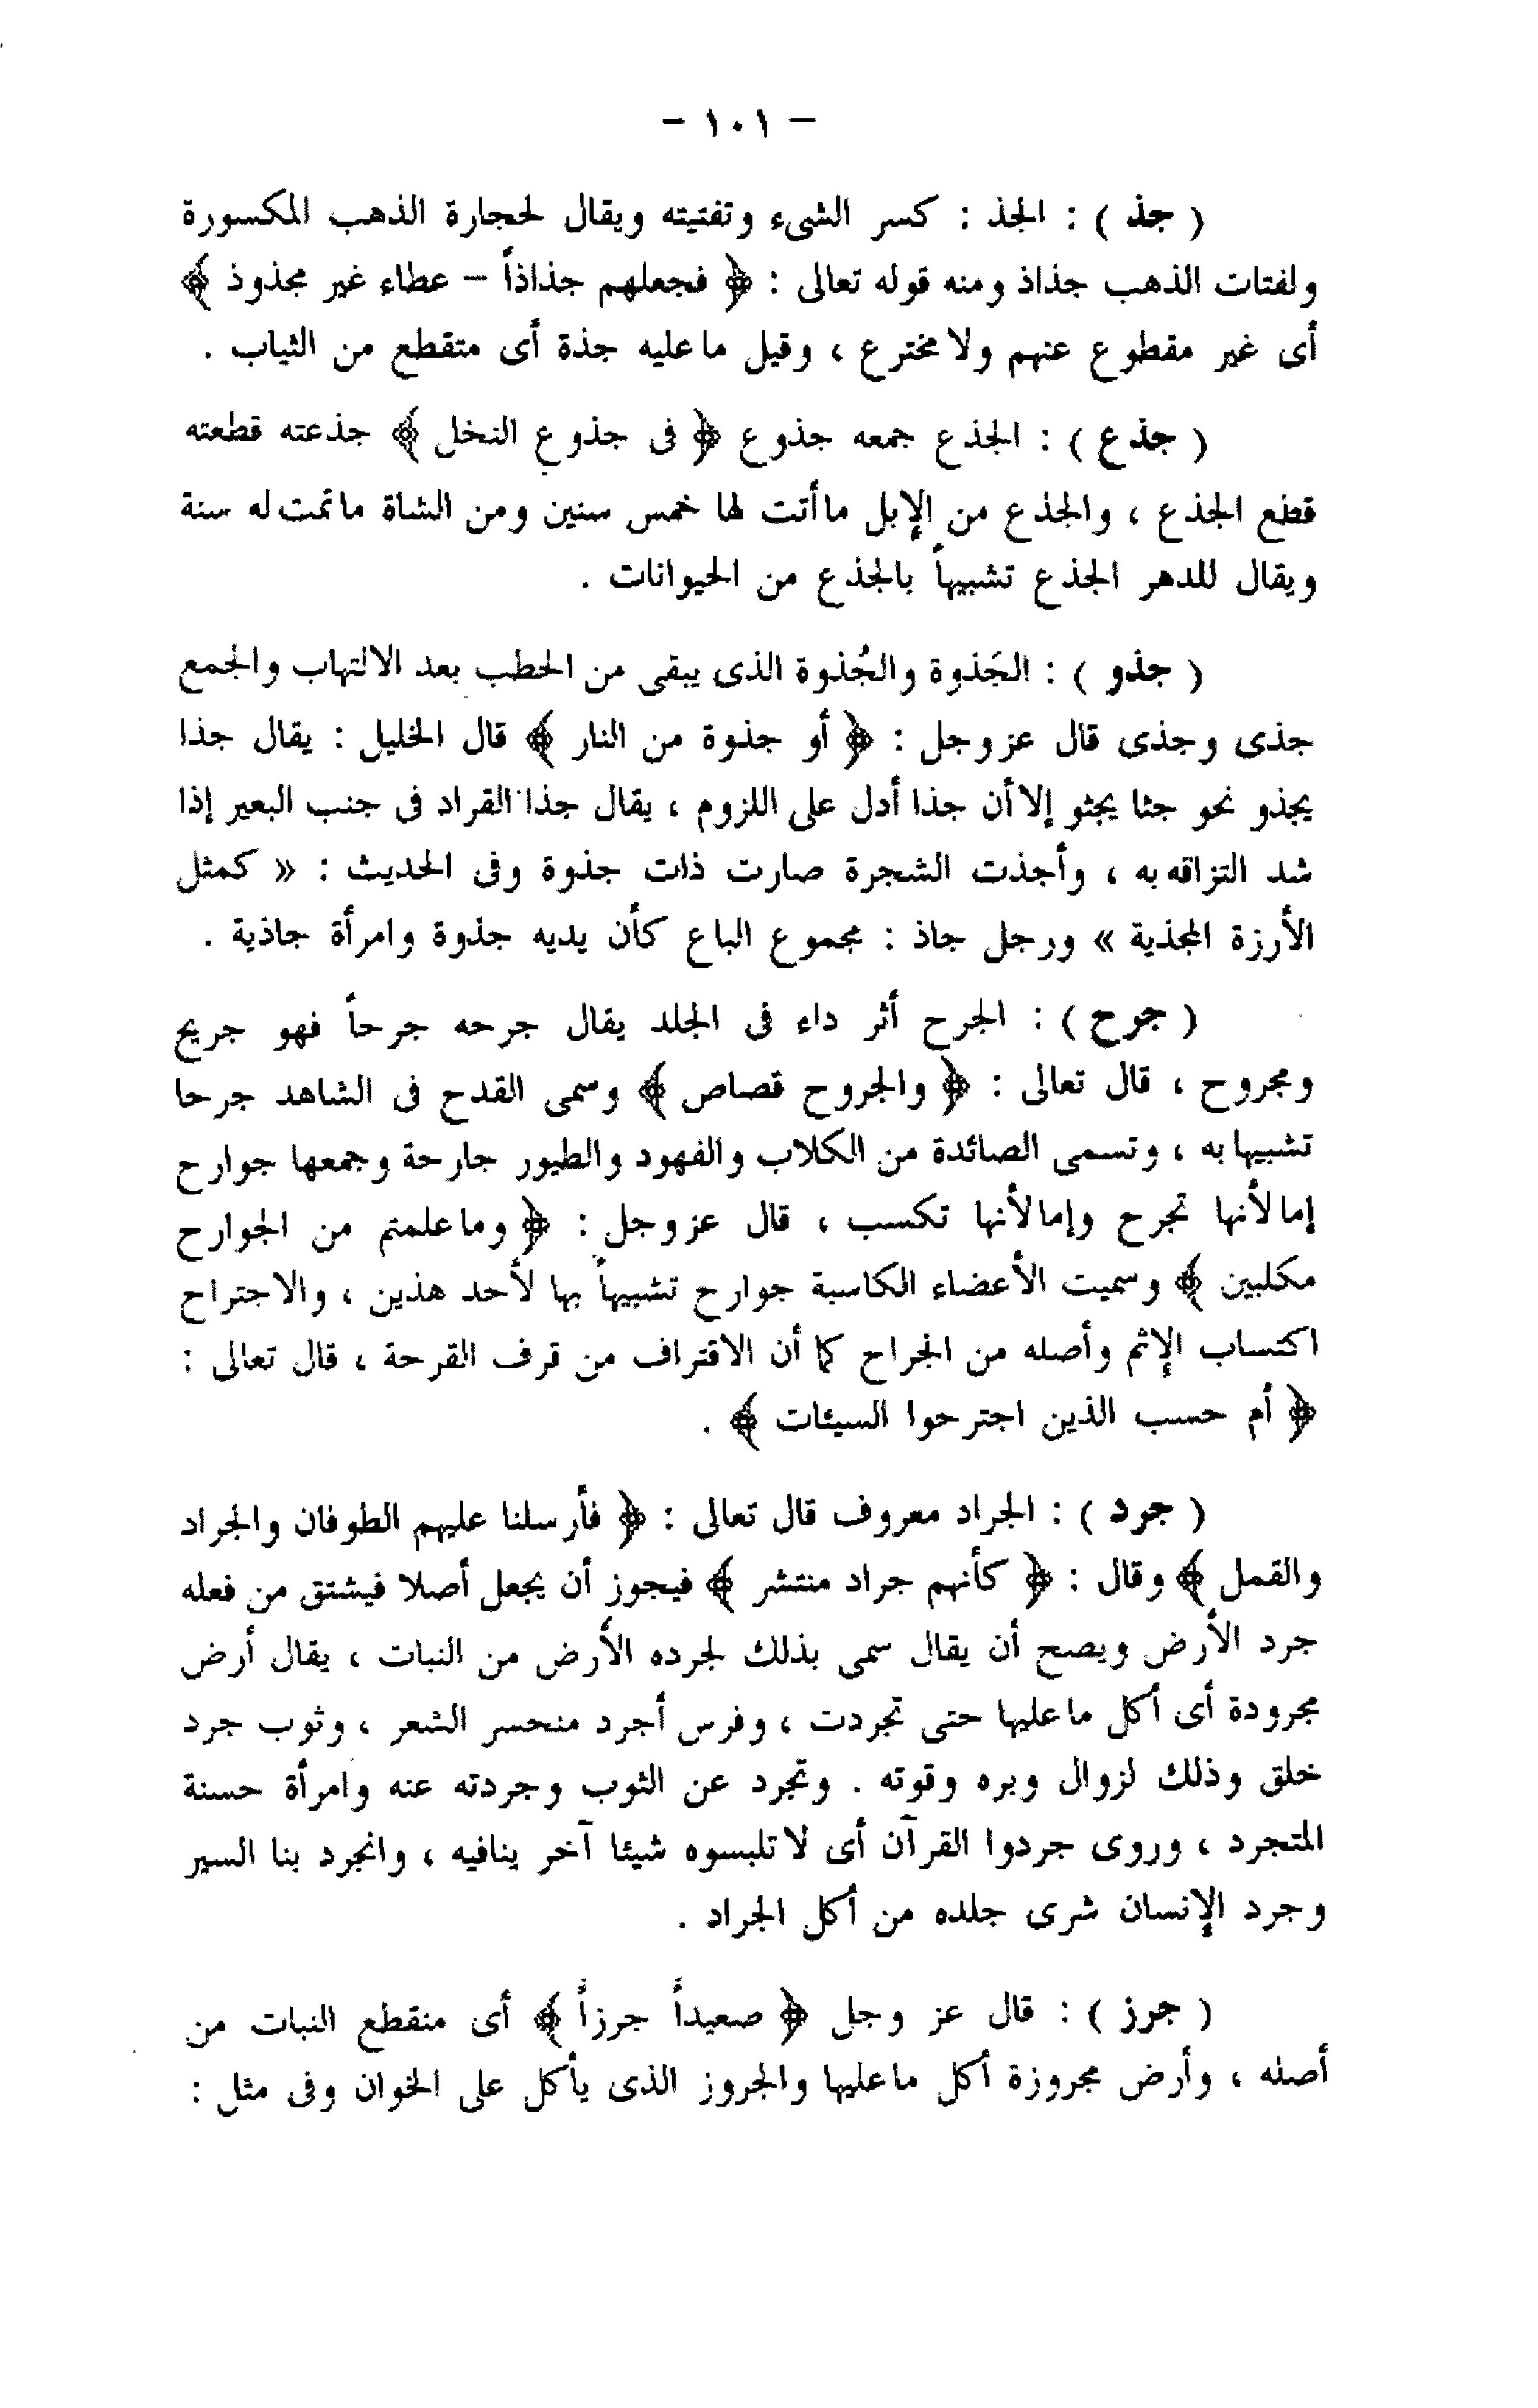 - ١٠١ -
( جذ ) : الجذ : كسر الشىء وتفتيته ويقال لحجارة الذهب المكسورة
ولفتات الذهب جذاذ ومنه قوله تعالى : ﴿ فجعلهم جذاذاً - عطاء غير مجذوذ ﴾
أى غير مقطوع عنهم ولا مخترع ، وقيل ما عليه جذة أى متقطع من الثياب .
( جذع ) : الجذع جمعه جذوع ﴿ فى جذوع النخل ﴾ جذعته قطعته
قطع الجذع ، والجذع من الإبل ما أتت لها خمس سنين ومن الشاة ما تمت له سنة
ويقال للدهر الجذع تشبيهاً بالجذع من الحيوانات .
( جذو ) : الجَذوة والجُذوة الذى يبقى من الحطب بعد الالتهاب والجمع
جذى وجذى قال عز وجل : ﴿ أو جذوة من النار ﴾ قال الخليل : يقال جذا
يجذو نحو جثا يجثو إلا أن جذا أدل على اللزوم ، يقال جذا القراد فى جنب البعير إذا
شد التزاقه به ، وأجذت الشجرة صارت ذات جذوة وفى الحديث : « كمثل
الأرزة المجذية » ورجل جاذ : مجموع الباع كأن يديه جذوة وامرأة جاذية .
( جرح ) : الجرح أثر داء فى الجلد يقال جرحه جرحاً فهو جريح
ومجروح ، قال تعالى : ﴿ والجروح قصاص ﴾ وسمى القدح فى الشاهد جرحا
تشبيها به ، وتسمى الصائدة من الكلاب والفهود والطيور جارحة وجمعها جوارح
إما لأنها تجرح وإما لأنها تكسب ، قال عز وجل : ﴿ وما علمتم من الجوارح
مكلبين ﴾ وسميت الأعضاء الكاسبة جوارح تشبيهاً بها لأحد هذين ، والاجتراح
اكتساب الإثم وأصله من الجراح كما أن الاقتراف من قرف القرحة ، قال تعالى :
﴿ أم حسب الذين اجترحوا السيئات ﴾ .
( جرد ) : الجراد معروف قال تعالى : ﴿ فأرسلنا عليهم الطوفان والجراد
والقمل ﴾ وقال : ﴿ كأنهم جراد منتشر ﴾ فيجوز أن يجعل أصلا فيشتق من فعله
جرد الأرض ويصح أن يقال سمى بذلك لجرده الأرض من النبات ، يقال أرض
مجرودة أى أكل ما عليها حتى تجردت ، وفرس أجرد منحسر الشعر ، وثوب جرد
خلق وذلك لزوال وبره وقوته . وتجرد عن الثوب وجردته عنه وامرأة حسنة
المتجرد ، وروى جردوا القرآن أى لا تلبسوه شيئا آخر ينافيه ، وانجرد بنا السير
وجرد الإنسان شرى جلده من أكل الجراد .
( جرز ) : قال عز وجل ﴿ صعيداً جرزاً ﴾ أى منقطع النبات من
أصله ، وأرض مجروزة أكل ما عليها والجروز الذى يأكل على الخوان وفى مثل :